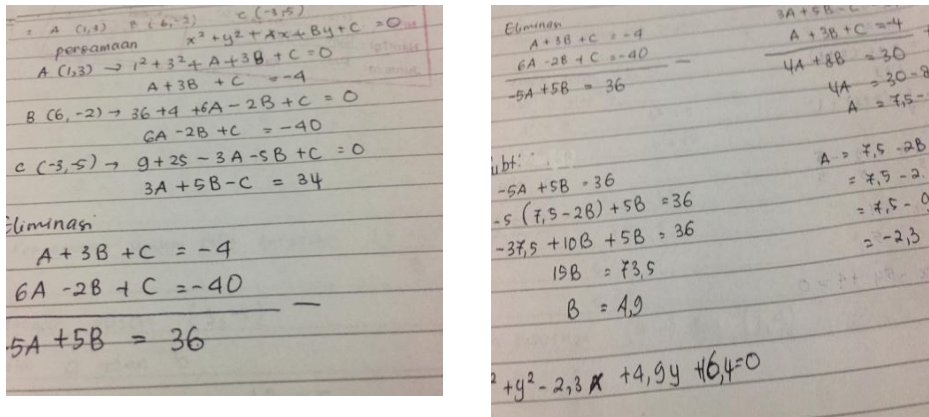 A (1,3) B (6,-2) C (-3,-5)
persamaan x² + y² + Ax + By + C = 0
A (1,3) → 1² + 3² + A + 3B + C = 0
A + 3B + C = -4
B (6,-2) → 36 + 4 + 6A - 2B + C = 0
6A - 2B + C = -40
C (-3,-5) → 9 + 25 - 3A - 5B + C = 0
3A + 5B - C = 34
Eliminasi
A + 3B + C = -4
6A - 2B + C = -40
-5A + 5B = 36
Eliminasi
A + 3B + C = -4
6A - 2B + C = -40
-5A + 5B = 36
3A + 5B - C
A + 3B + C = -4
4A + 8B = 30
4A = 30 - 8
A = 7,5 -
ubt:
-5A + 5B = 36
-5 (7,5 - 2B) + 5B = 36
-37,5 + 10B + 5B = 36
15B = 73,5
B = 4,9
A = 7,5 - 2B
= 7,5 - 2.
= 7,5 - 9
= -2,3
² + y² - 2,3x + 4,9y + 6,4 = 0